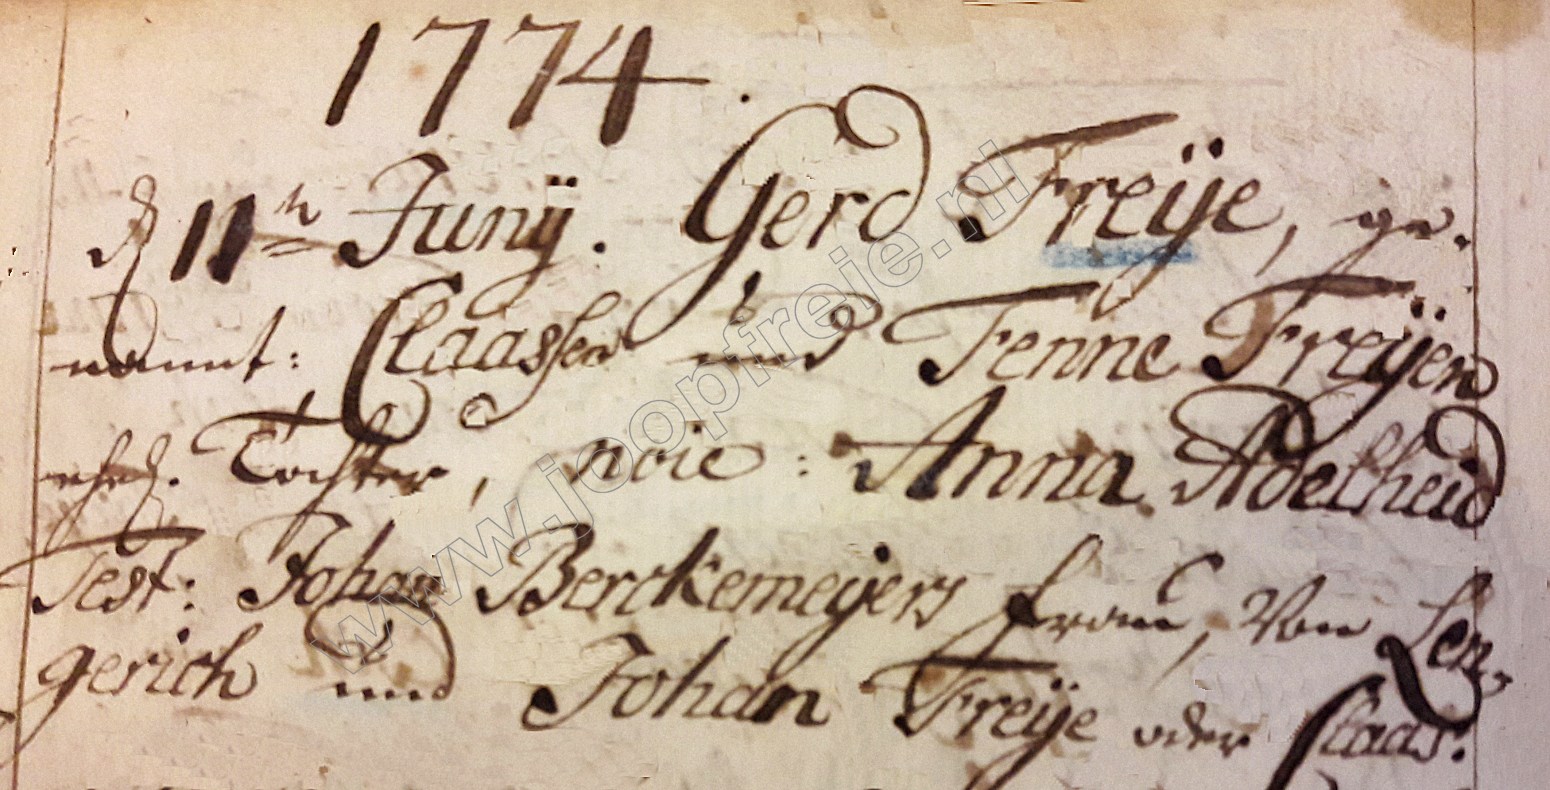 1774.
d. 11th Junÿ. Gerd Freÿe, ge-
nannt: Claassen und Fenne Freÿen
ehel. Tochter, noie: Anna Adelheid
Test: Johan Berckemeÿers frau, von Len-
gerich und Johan Freÿe oder Claas.
www.joopfreie.nl